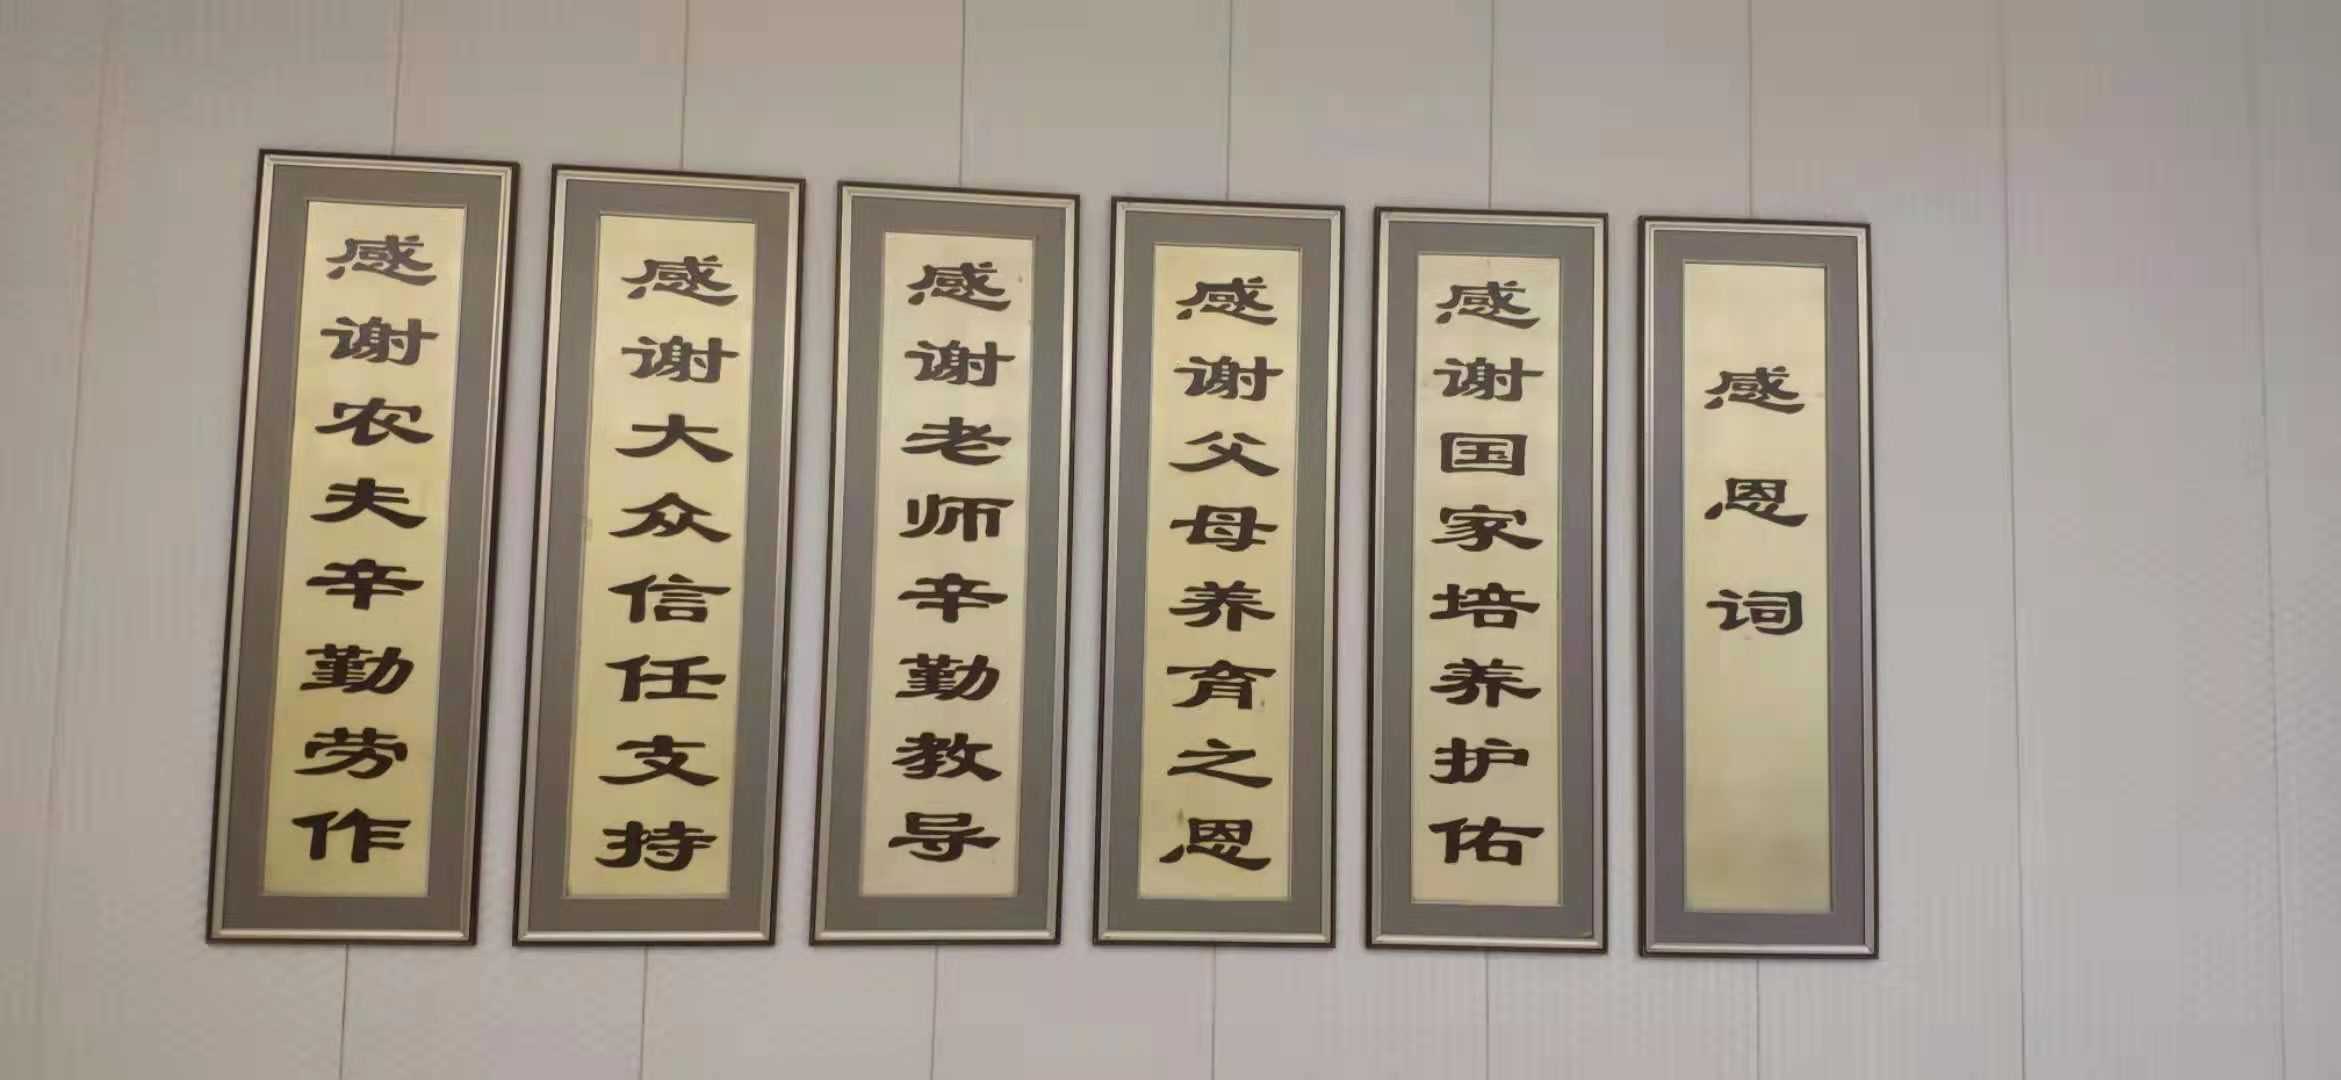 感恩词
感谢国家培养护佑
感谢父母养育之恩
感谢老师辛勤教导
感谢大众信任支持
感谢农夫辛勤劳作